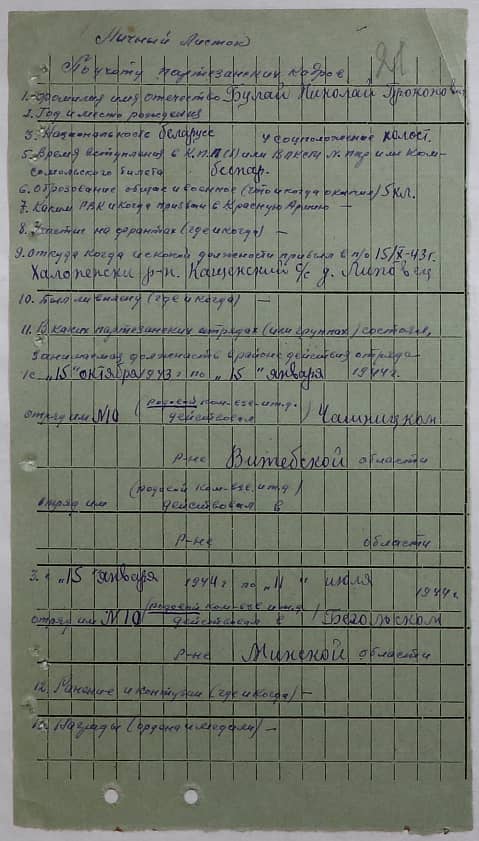 Личный Листок
21
По учету партизанских кадров
1. Фамилия имя отчество Булай Николай Прокопович
2. Год и место рождения
3. Национальность беларусс 4 соцположение холост.
5. Время вступления в К.П.П(б) или ВЛКСМ № п/б или Ком-
сомольского билета беспар.
6. Образование общее и военное (что и когда окончил) 5 кл.
7. Каким РВК и когда призван в Красную Армию —
8. Участие на фронтах (где и когда) —
9. Откуда когда и с какой должности прибыл в п/о 15/X-43 г.
Халопенски р-н. Кащенский с/с д. Липовец
10. Был ли в плену (где и когда) —
11. В каких партизанских отрядах (или группах) состоял,
занимаемая должность в районе действия отряда
1 с "15" октября 1943 г по "15" января 1944 г.
отряд им №10 (рядовой ком-ЕВЕ. и т.д. действовал) Чашницком
р-не Витебской области
(рядовой ком-ЕВЕ. и т.д)
отряд им действовал в
р-не области
3. с "15 января 1944 г по "11" июля 1944 г.
отряд им №10 (рядовой ком-ЕВЕ и т.д действовал в) Бегольском
р-не Минской области
12. Ранение и контузии (где и когда) —
13. Награды (ордена и медали) —